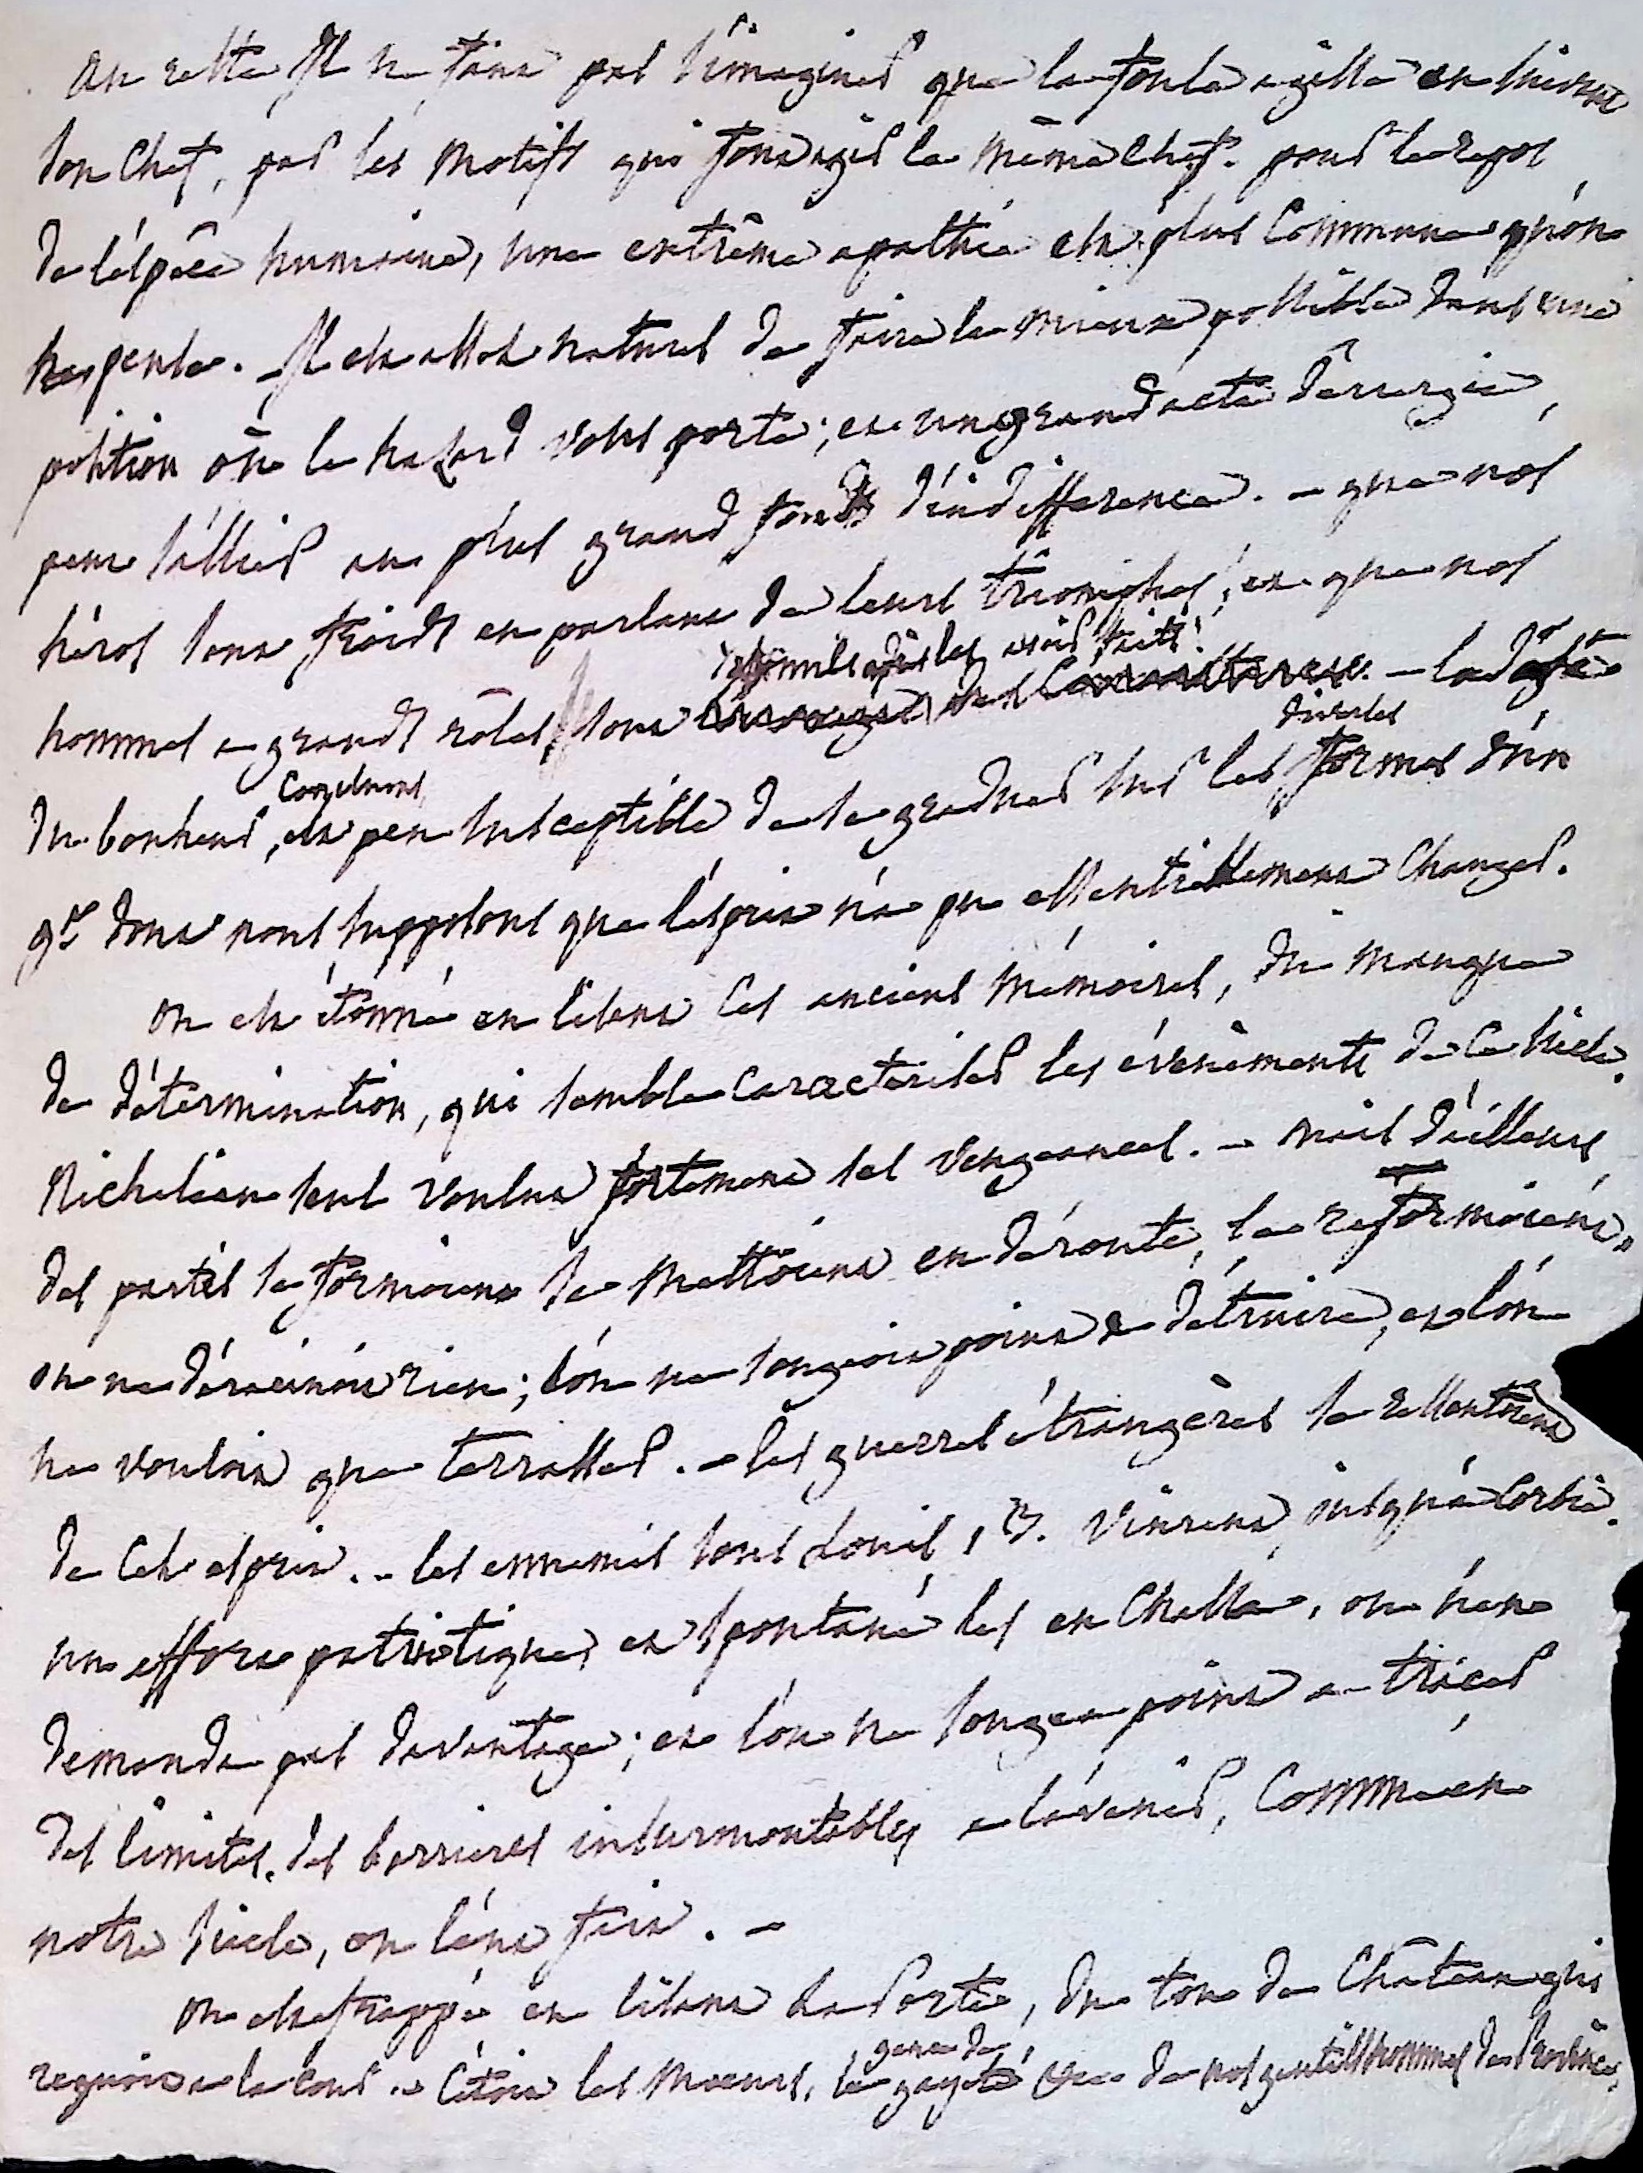 au reste Il ne faut pas s'imaginer que la foule agisse en suivant
son chef, par les motifs qui font agir le même chef. pour le repos
de l'espèce humaine, une extrême apathie est plus Commune qu'on
ne pense. Il est assez naturel de faire le mieux possible dans une
position où le hazard vous porte; et un grand acte d'énergie,
peut s'allier au plus grand fonds d'indifférence. - que nos
héros sont froids en parlant de leurs triomphes! et que nos
hommes a grands rôles sont après les avoir faits! - la
diverses
du bonheur, est peu susceptible de se graduer sur les formes d'un
qd dont nous supposons que l'esprit n'a pu essentiellement Changer.
on est étonné en lisant Ces anciens Mémoires, du manque
de détermination, qui semble Caractériser les évènements de Ce siècle.
Richelieu seul voulut fortement ses vengeances. - mais d'ailleurs
des partis se formoient se mettoient en déroute, se reformoient,
on ne déracinoit rien; l'on ne songeoit point a détruire, et l'on
ne vouloit que terrasser. - les guerres étrangères se ressentoient
de Cet esprit. - les ennemis sous Louis, 13. vinrent jusqu'à Corbie.
un effort patriotique et spontané les en Chassa, on n'en
demanda pas davantage; et l'on ne songea point a tracer
des limites, des barrieres insurmontables a l'avenir, Comme en
notre siècle, on l'eut fait. -
on est frappé en lisant La Porte, du ton de Château qui
regnoit a la Cour. - C'étoit les Moeurs,
genre de
la gayeté de nos gentilshommes de Province,